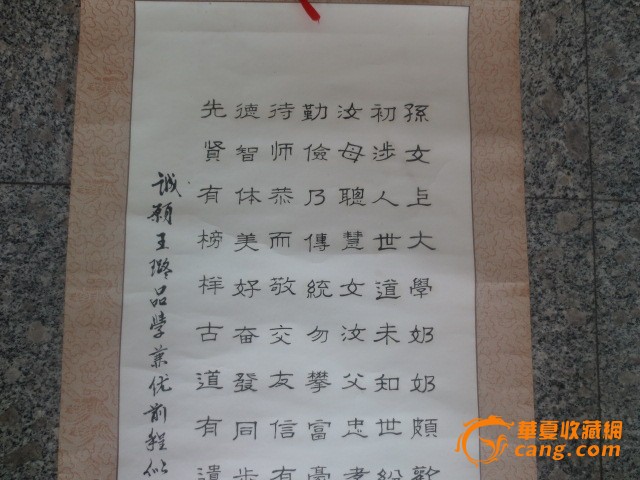 孫女上大學奶奶頗歡
初涉人世道未知世紛
汝母聰慧女汝父忠孝
勤儉乃傳統勿攀富豪
待师恭而敬交友信有
德智体美好奋發同步
先贤有榜样古道有遺
诚愿王璐品学兼优前程似
華夏收藏网
cang.com